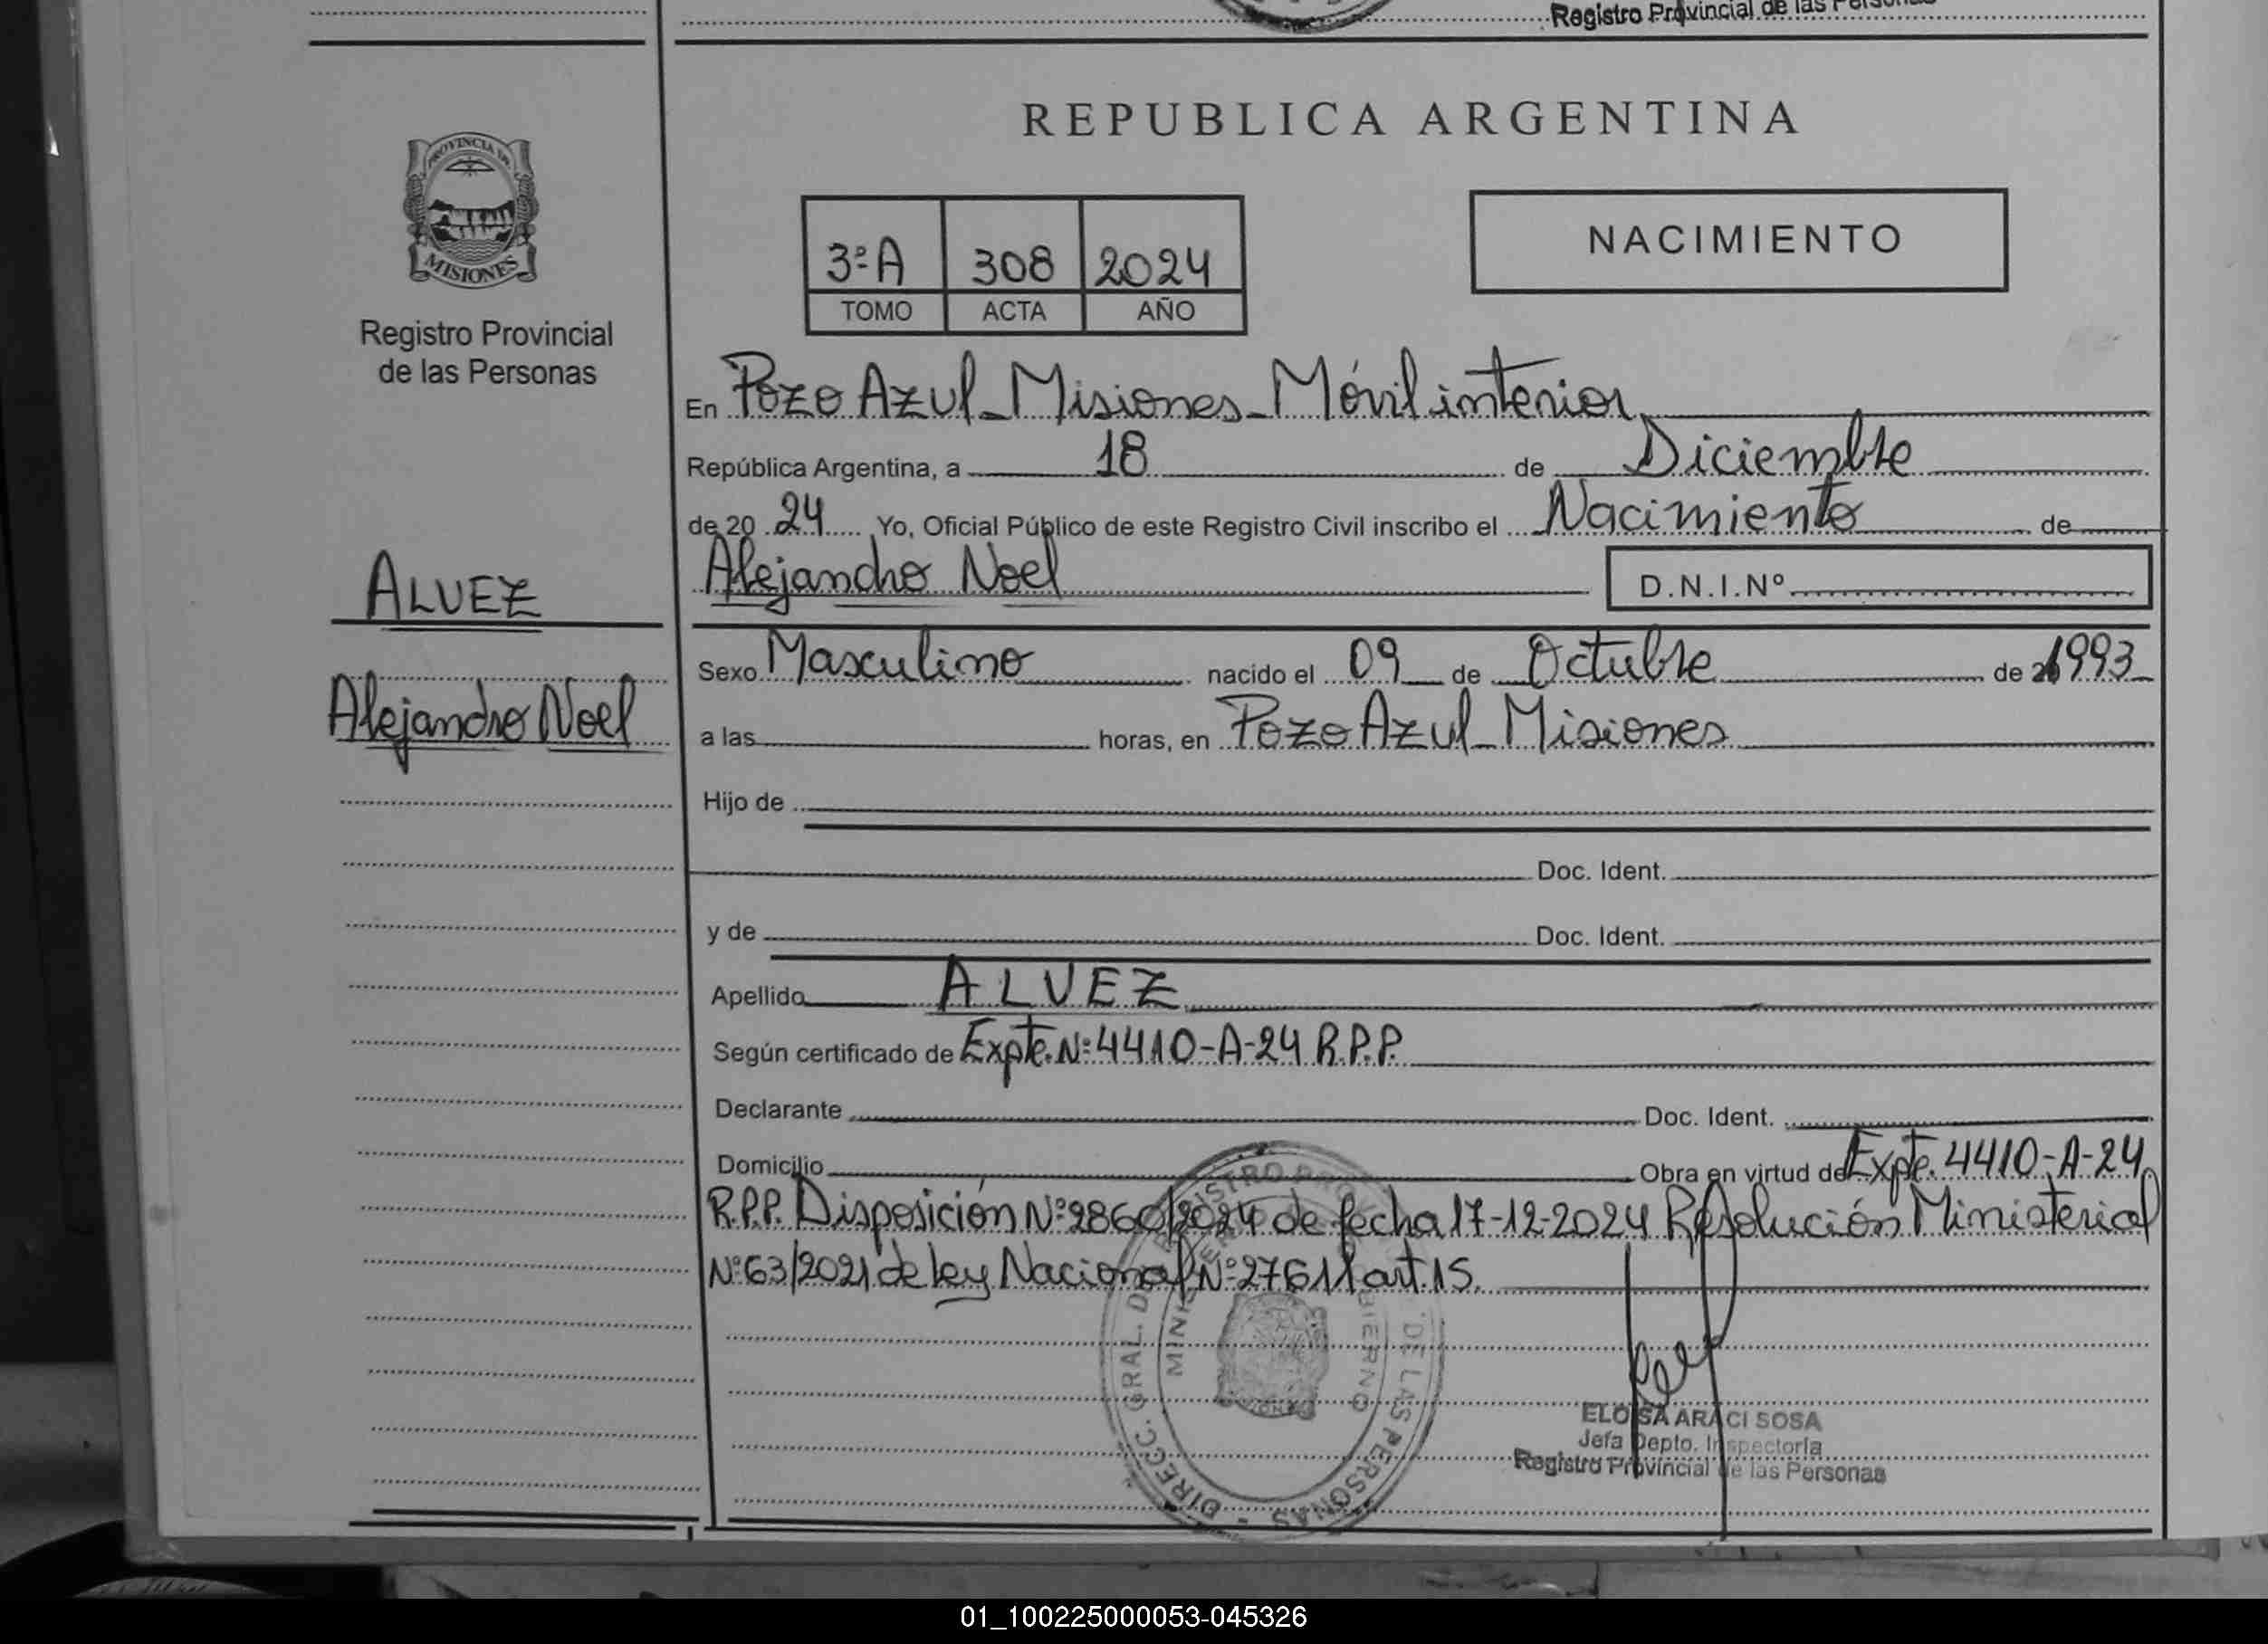 Registro Provincial de las Personas
REPUBLICA ARGENTINA
PROVINCIA DE
MISIONES
Registro Provincial
de las Personas
3ª A 308 2024
TOMO ACTA AÑO
NACIMIENTO
En Pozo Azul - Misiones - Móvil interior
República Argentina, a 18 de Diciembre
de 20 24 Yo, Oficial Público de este Registro Civil inscribo el Nacimiento de
Alejandro Noel D.N.I.Nº
ALVEZ
Alejandro Noel
Sexo Masculino nacido el 09 de Octubre de 1993
a las horas, en Pozo Azul - Misiones
Hijo de
Doc. Ident.
y de Doc. Ident.
Apellido ALVEZ
Según certificado de Expte. Nº 4410-A-24 R.P.P.
Declarante Doc. Ident.
Domicilio Obra en virtud de Expte. 4410-A-24
R.P.P. Disposición Nº 2860/2024 de fecha 17-12-2024 Resolución Ministerial
Nº 63/2021 de ley Nacional Nº 27611 art. 15.
DIRECC. GRAL. DEL REGISTRO PROV. DE LAS PERSONAS
ELOISA ARACI SOSA
Jefa Depto. Inspectoría
Registro Provincial de las Personas
01_100225000053-045326